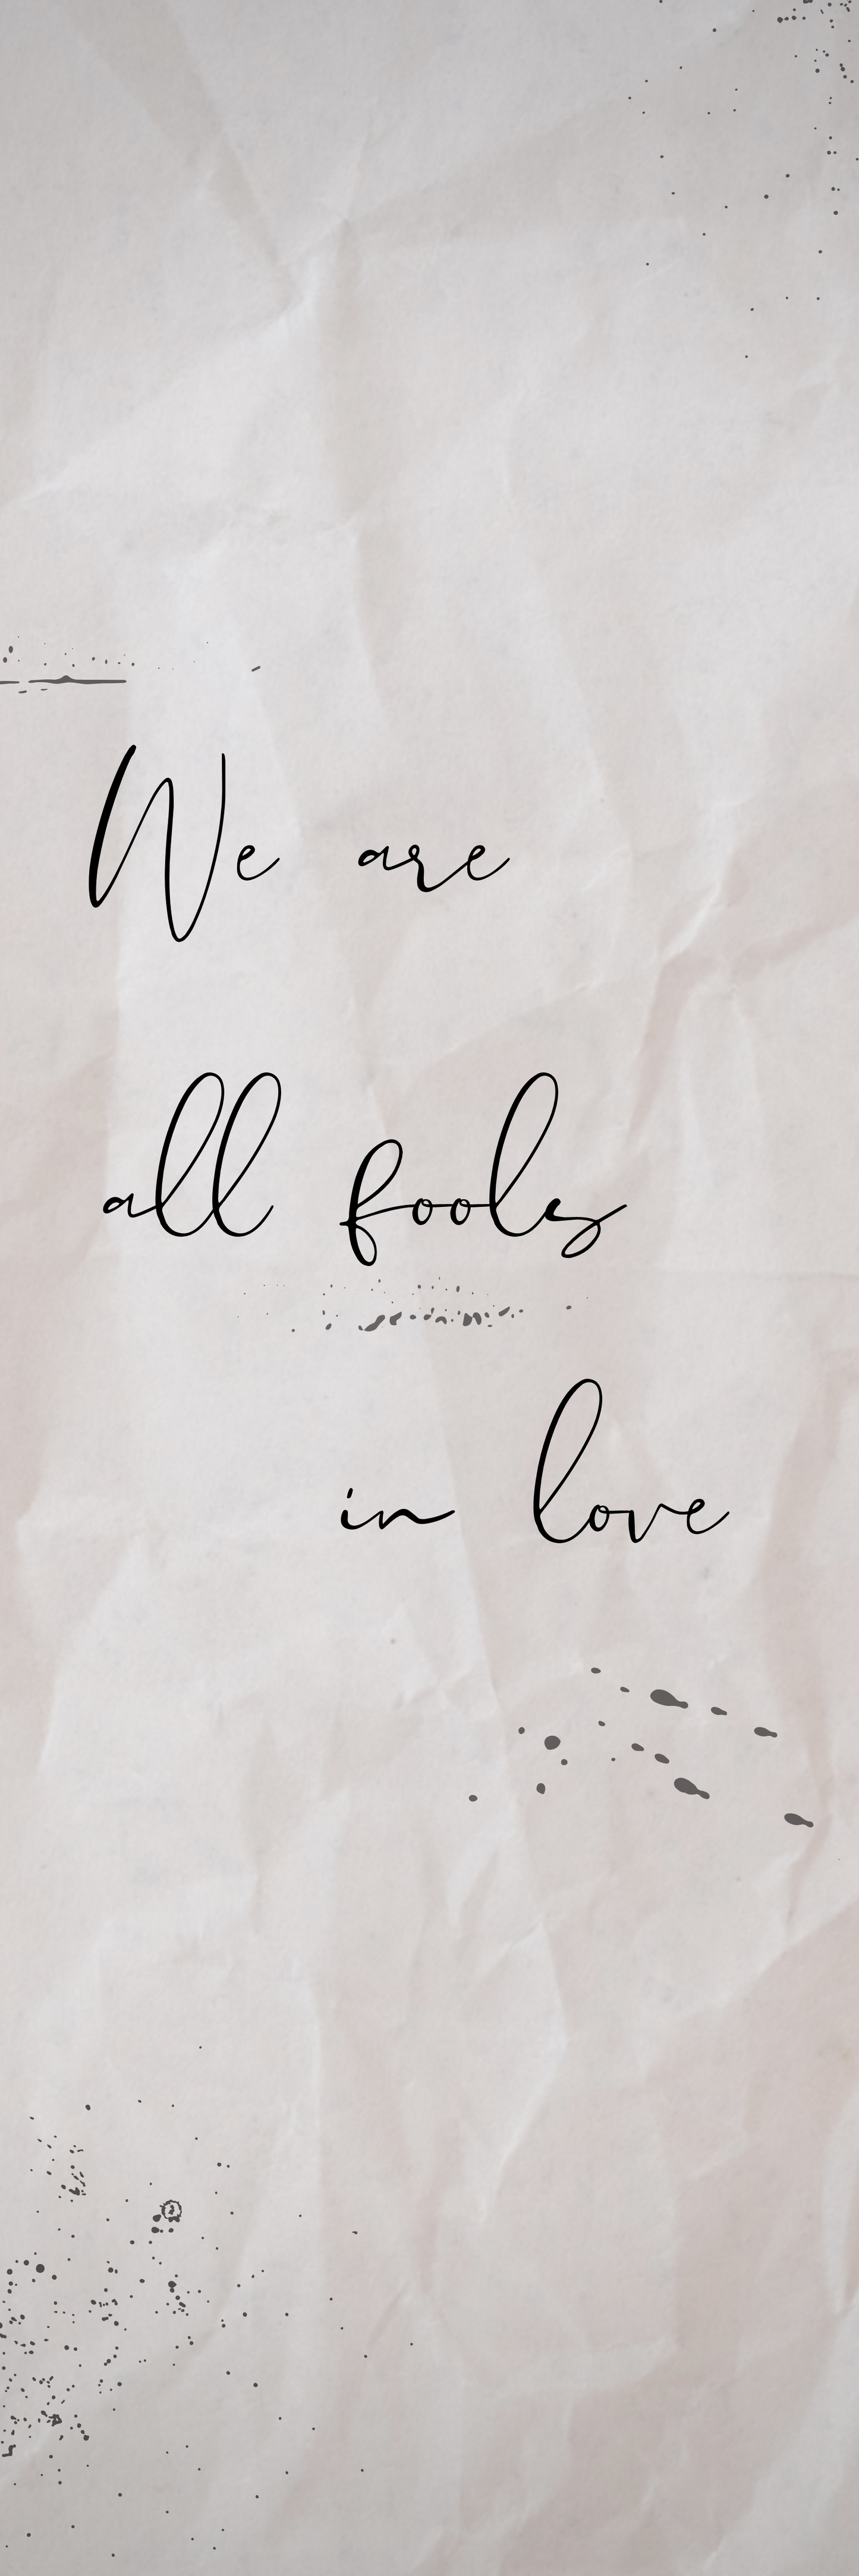 We are
all fools
in love